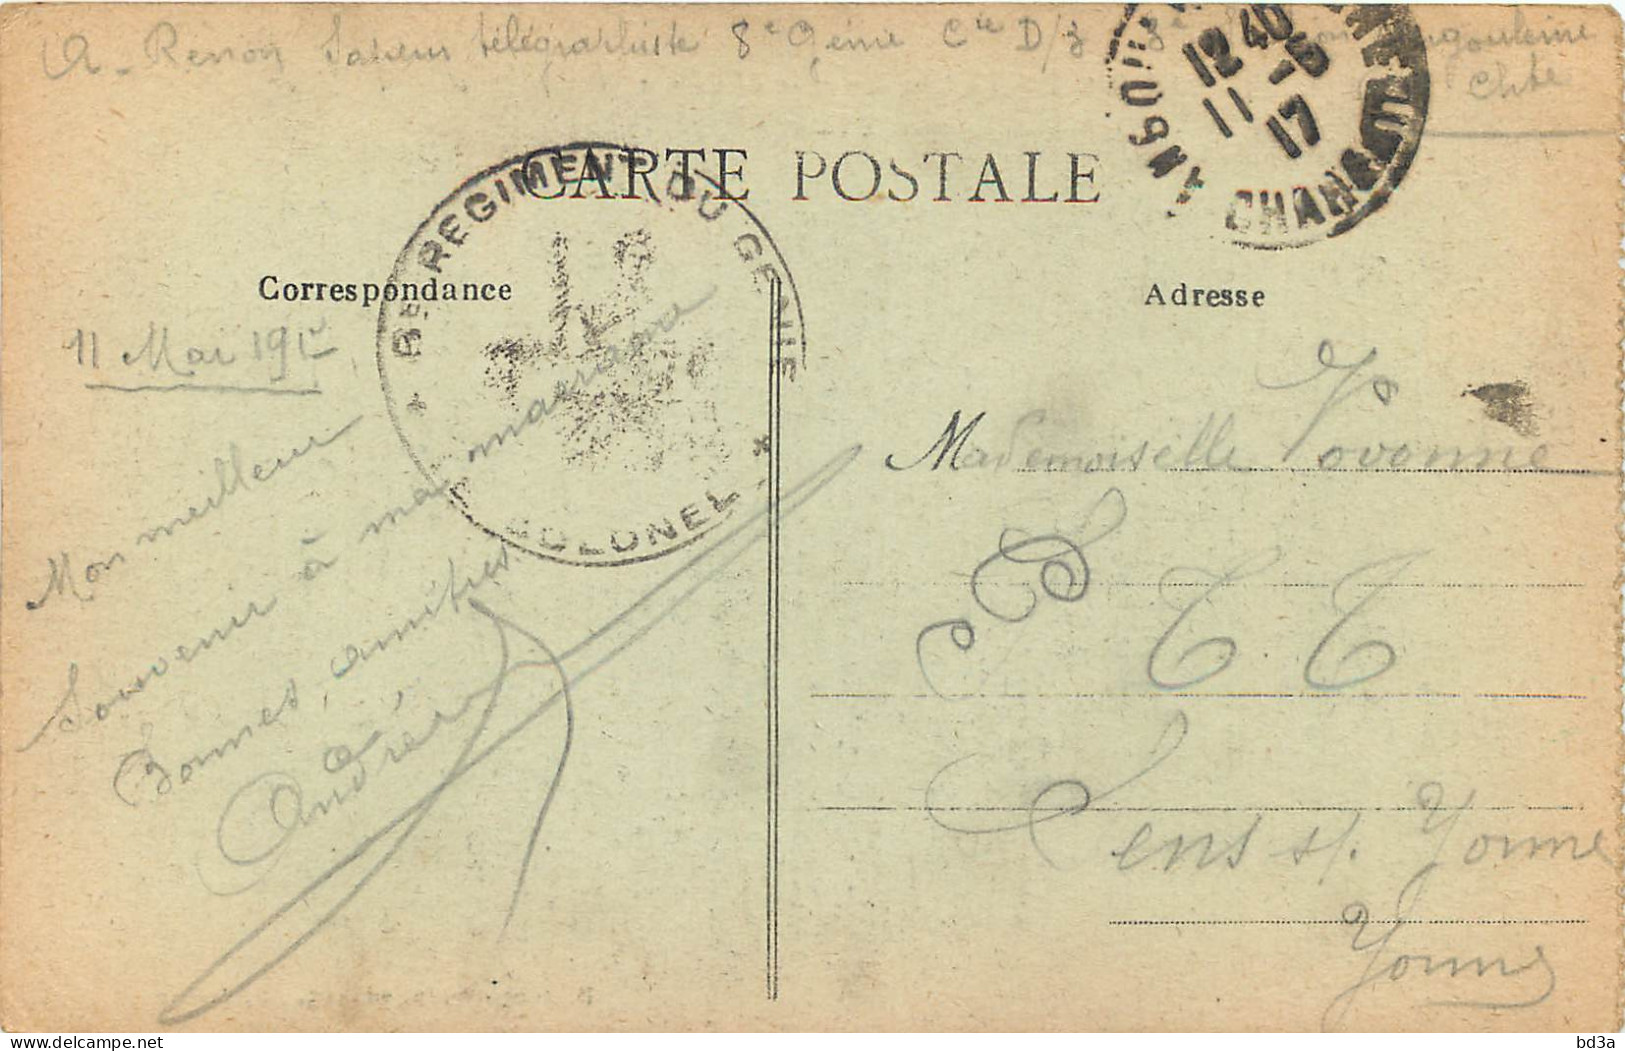 A. Renon Sapeur télégraphiste 8e Génie Cie D/3 Angoulême
Chte
12 40
11 -5
17
CHARENTE
CARTE POSTALE
8e REGIMENT DU GENIE
COLONEL
Correspondance
Adresse
11 Mai 1917
Mon meilleur
Souvenir à ma marraine
Bonnes amitiés
André
Mademoiselle Yvonne
P T T
Sens s/. Yonne
Yonne